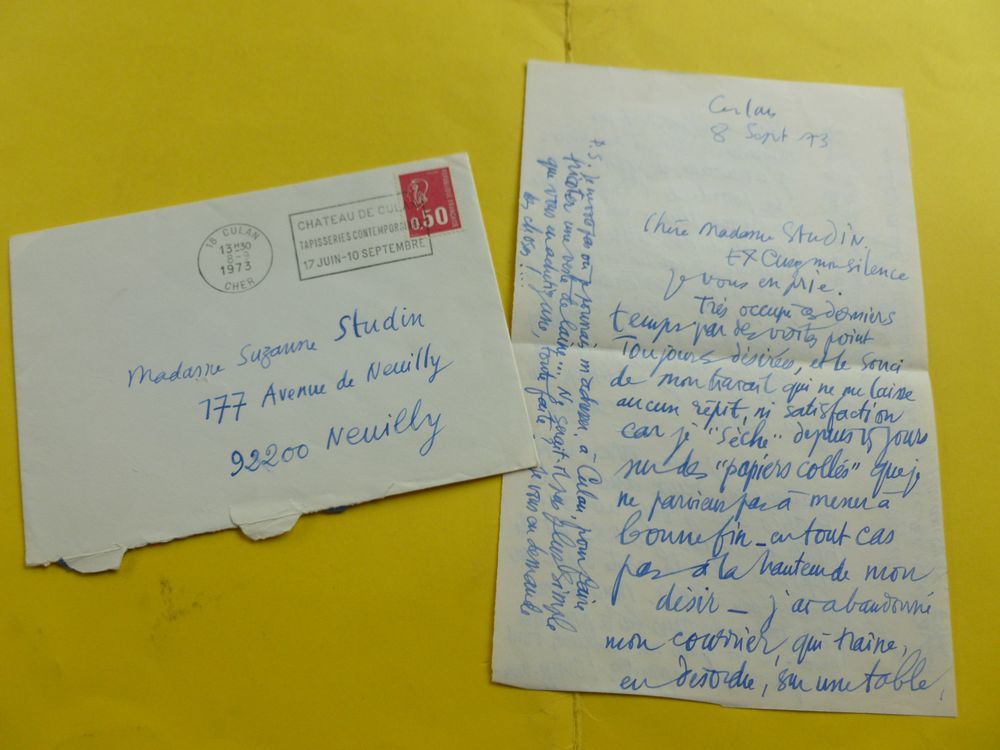 18 CULAN
13H30
8-9
1973
CHER
CHATEAU DE CUL
TAPISSERIES CONTEMPOR
17 JUIN-10 SEPTEMBRE
0,50
Madame Suzanne Studin
177 Avenue de Neuilly
92200 Neuilly
Culan
8 Sept 73
Chère Madame Studin.
EXCusez mon silence
je vous en prie.
Très occupé ces derniers
temps par des visites point
Toujours désirées, et le souci
de mon travail qui ne me laisse
aucun répit, ni satisfaction
car je "sèche" depuis 15 jours
sur des "papiers collés" que je
ne parviens pas à mener à
bonne fin - en tout cas
pas à la hauteur de mon
désir - j'ai abandonné
mon courrier, qui traîne,
en désordre, sur une table,
P.S. je ne vois pas où je pourrais m'adresser, à Culan, pour faire
une veste de laine... Ne serait-il pas plus simple
que vous m'achetiez une, toute faite? je vous en demande
les choses!...